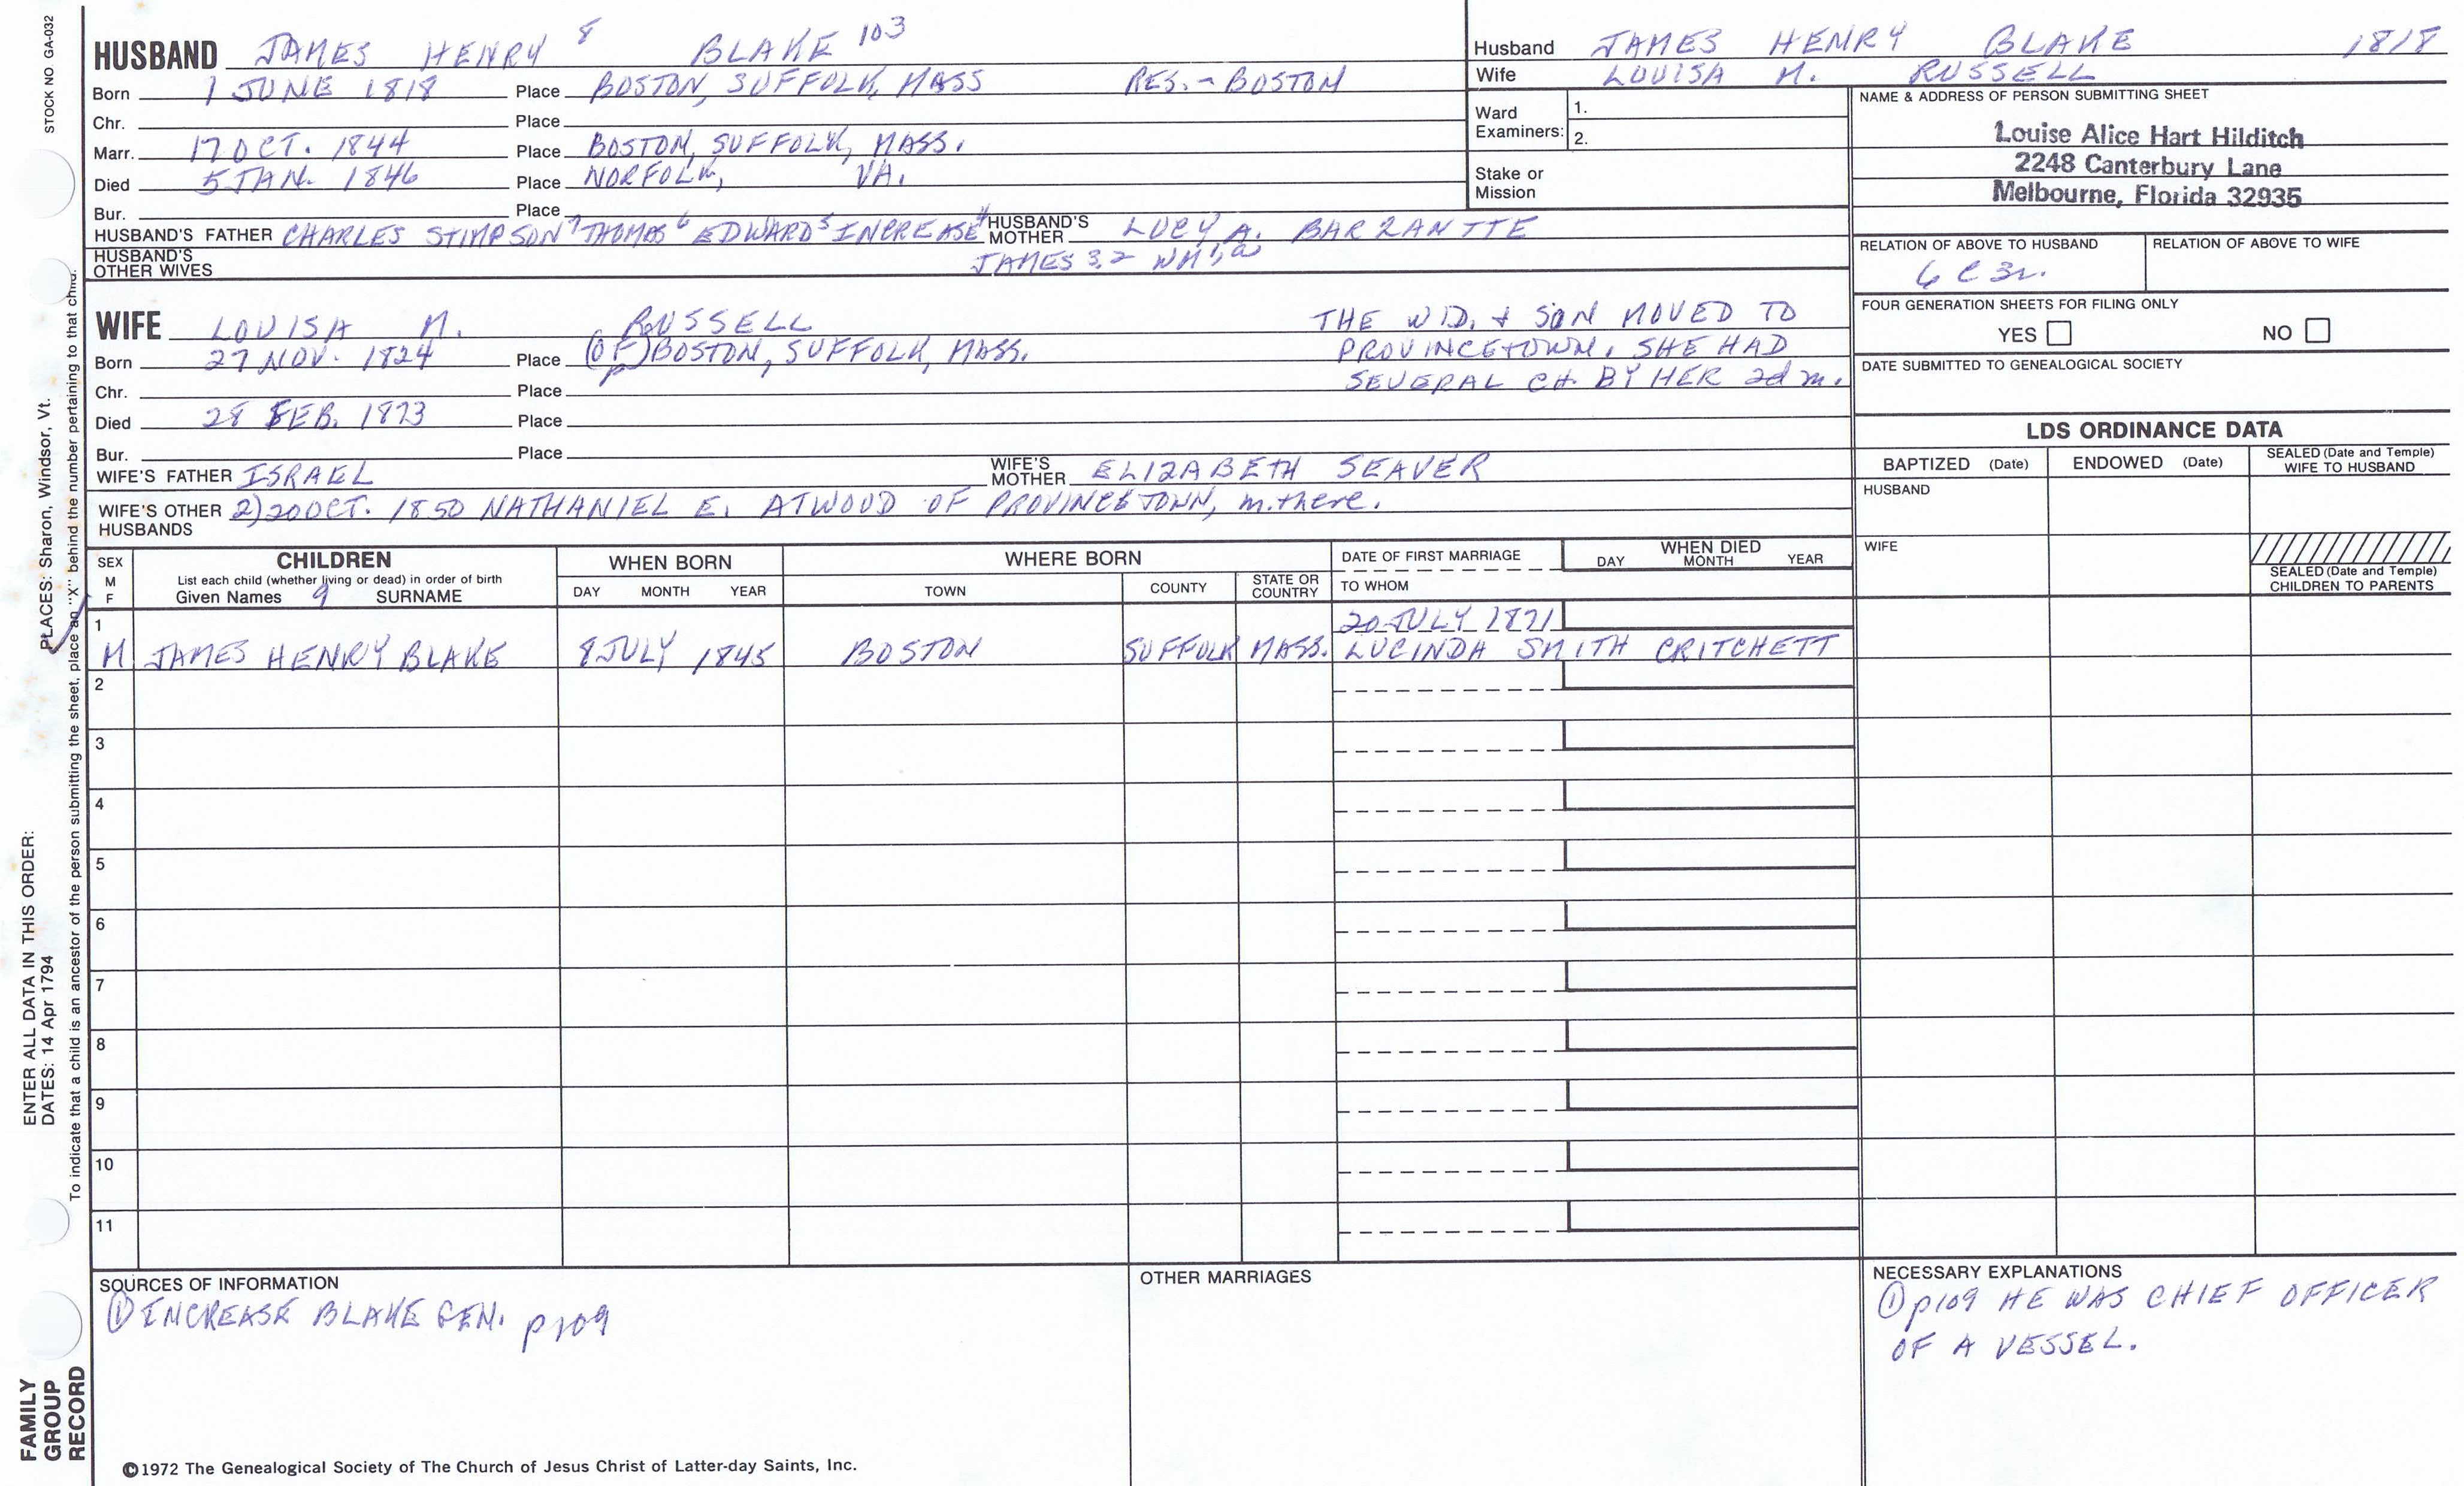 STOCK NO GA-032
HUSBAND JAMES HENRY 8 BLAKE 103
Born 1 JUNE 1818 Place BOSTON, SUFFOLK, MASS RES. - BOSTON
Chr. Place
Marr. 17 OCT. 1844 Place BOSTON, SUFFOLK, MASS.
Died 5 JAN. 1846 Place NORFOLK, VA.
Bur. Place
HUSBAND'S FATHER CHARLES STIMPSON 7 THOMAS 6 EDWARD 5 INCREASE 4 HUSBAND'S MOTHER LUCY A. BARRANTTE
HUSBAND'S OTHER WIVES JAMES 3,2 WM 1, a
Husband JAMES HENRY BLAKE 1818
Wife LOUISA M. RUSSELL
Ward Examiners: 1.
2.
Stake or Mission
NAME & ADDRESS OF PERSON SUBMITTING SHEET
Louise Alice Hart Hilditch
2248 Canterbury Lane
Melbourne, Florida 32935
RELATION OF ABOVE TO HUSBAND RELATION OF ABOVE TO WIFE
6 C 3r.
FOUR GENERATION SHEETS FOR FILING ONLY
YES NO
DATE SUBMITTED TO GENEALOGICAL SOCIETY
WIFE LOUISA M. RUSSELL
Born 27 NOV. 1824 Place (OF) BOSTON, SUFFOLK, MASS.
p
Chr. Place
Died 28 FEB. 1873 Place
Bur. Place
THE WID. + SON MOVED TO
PROVINCETOWN. SHE HAD
SEVERAL CH. BY HER 2d m.
WIFE'S FATHER ISRAEL WIFE'S MOTHER ELIZABETH SEAVER
WIFE'S OTHER HUSBANDS 2) 20 OCT. 1850 NATHANIEL E. ATWOOD OF PROVINCETOWN, m. there.
LDS ORDINANCE DATA
BAPTIZED (Date) ENDOWED (Date) SEALED (Date and Temple) WIFE TO HUSBAND
HUSBAND
WIFE
SEALED (Date and Temple) CHILDREN TO PARENTS
SEX M F CHILDREN WHEN BORN WHERE BORN DATE OF FIRST MARRIAGE WHEN DIED
List each child (whether living or dead) in order of birth
Given Names 9 SURNAME DAY MONTH YEAR TOWN COUNTY STATE OR COUNTRY TO WHOM DAY MONTH YEAR
1 20 JULY 1871
M JAMES HENRY BLAKE 8 JULY 1845 BOSTON SUFFOLK MASS. LUCINDA SMITH CRITCHETT
2
3
4
5
6
7
8
9
10
11
SOURCES OF INFORMATION
① INCREASE BLAKE GEN. p109
OTHER MARRIAGES
NECESSARY EXPLANATIONS
① p109 HE WAS CHIEF OFFICER
OF A VESSEL.
©1972 The Genealogical Society of The Church of Jesus Christ of Latter-day Saints, Inc.
FAMILY
GROUP
RECORD
ENTER ALL DATA IN THIS ORDER:
DATES: 14 Apr 1794
PLACES: Sharon, Windsor, Vt.
To indicate that a child is an ancestor of the person submitting the sheet, place an "X" behind the number pertaining to that child.